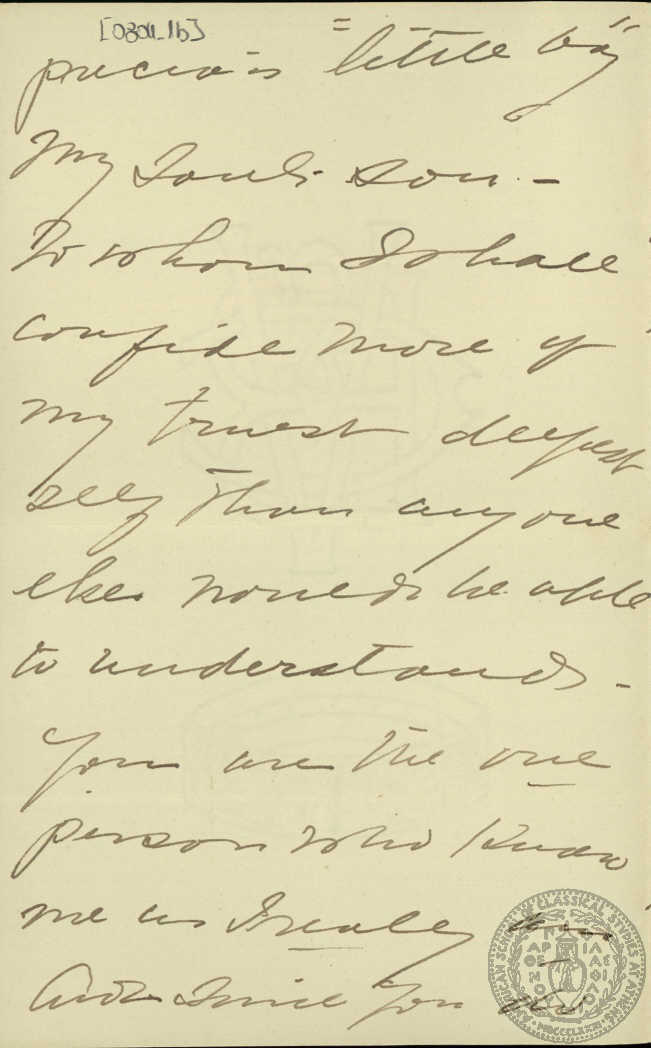 [0304_1b]
precious "little boy"
My Soul's son. -
To whom I shall
confide more of
my truest deepest
self than anyone
else would be able
to understand. -
You are the one
person who knows
me as I really am
And since you
AMERICAN SCHOOL OF CLASSICAL STUDIES AT ATHENS
ΠΑΡΘΕΝΟΥ ΦΙΛΑΣ ΦΙΛΟΙ
MDCCCLXXXI